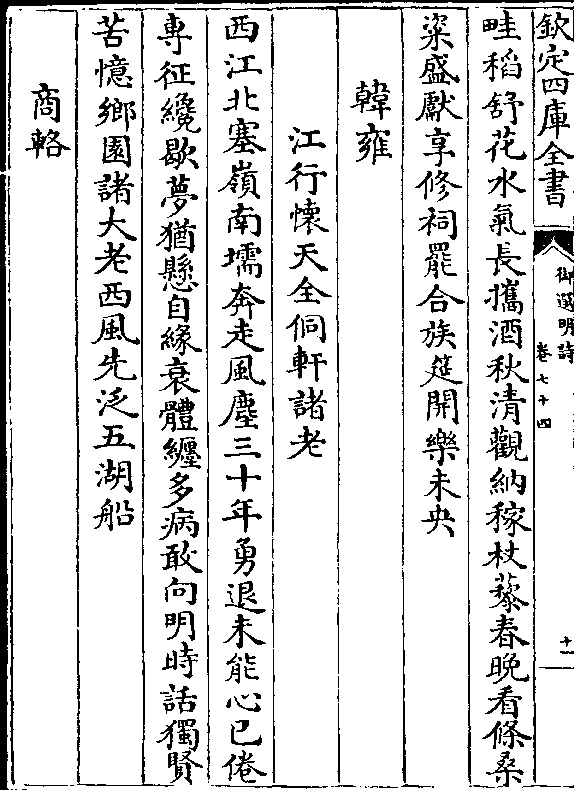 欽定四庫全書
御選明詩
卷七十四
十一
畦稻舒花水氣長攜酒秋清觀納稼杖藜春晚看條桑
粢盛獻享修祠罷合族筵開樂未央
韓雍
江行懷天全侗軒諸老
西江北塞嶺南壖奔走風塵三十年勇退未能心已倦
專征纔歇夢猶懸自緣衰體纏多病敢向明時話獨賢
苦憶鄉園諸大老西風先泛五湖船
商輅